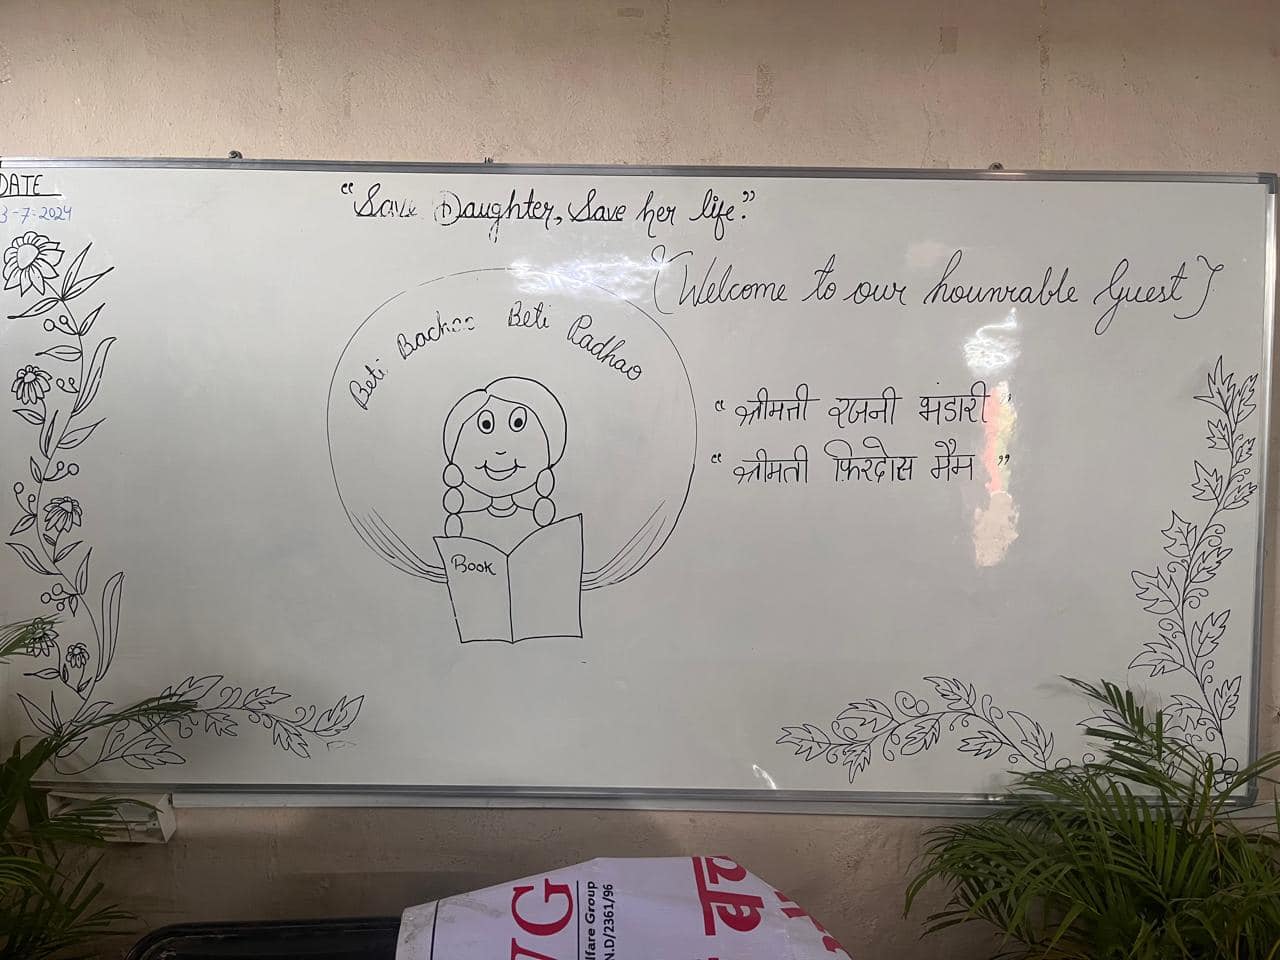 DATE
3-7-2024
"Save Daughter, Save her life."
(Welcome to our hounrable Guest)
Beti Bachao Beti Padhao
"श्रीमती रजनी भंडारी"
"श्रीमती फ़िरदोस मैम"
Book
lfare Group
N.D/2361/96